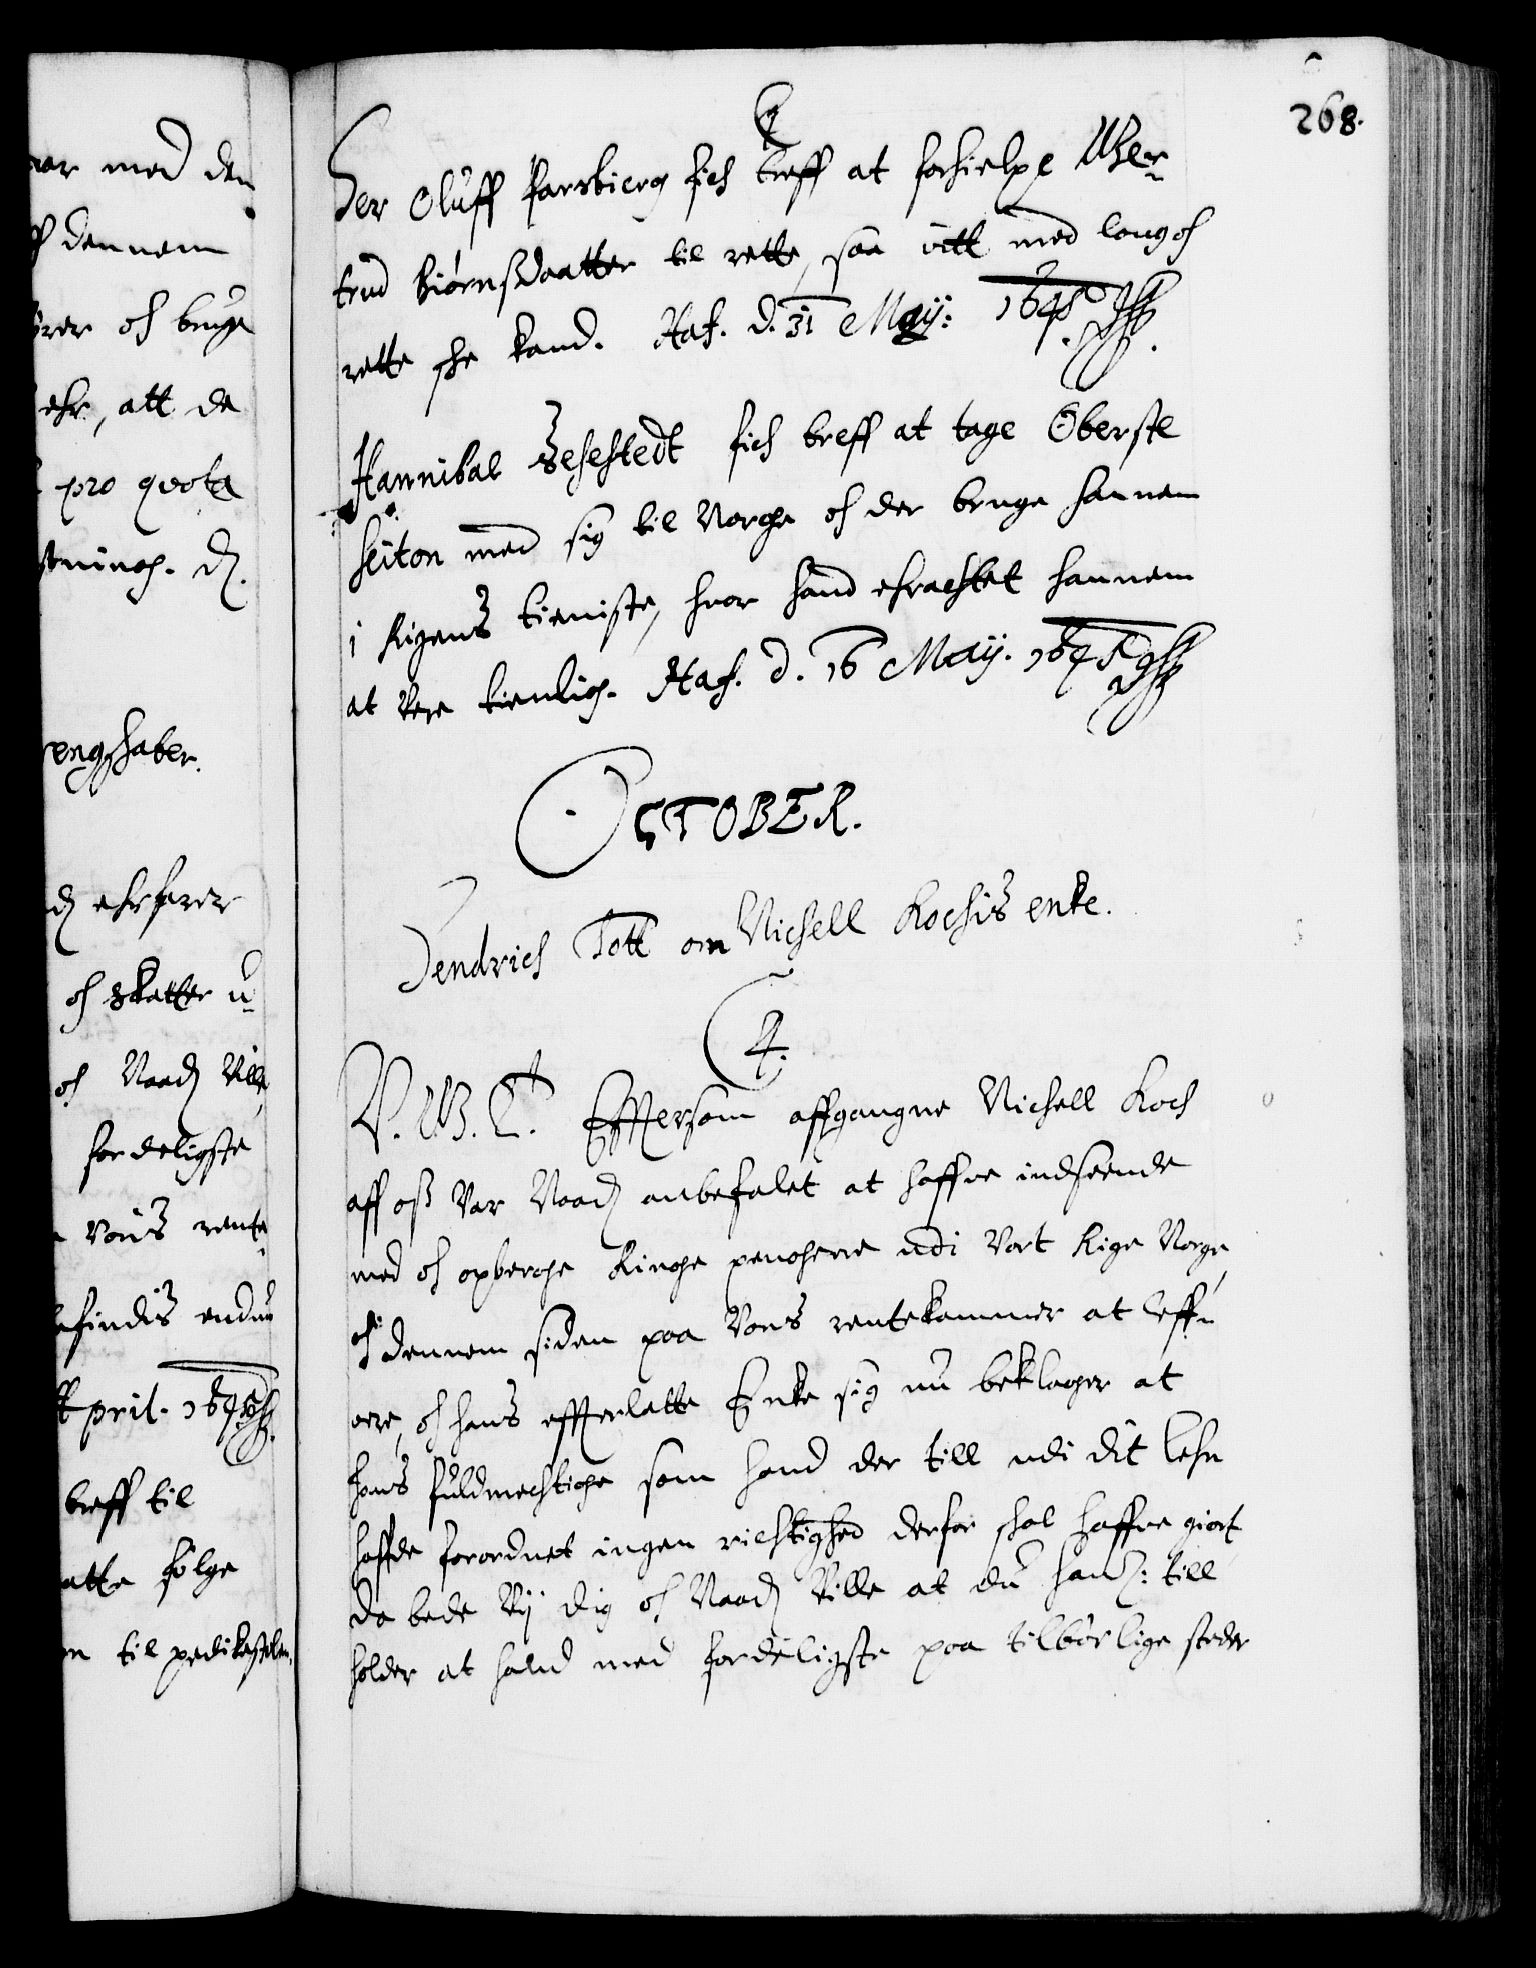 268.
Her Oluff Parsbierg fich breff at forhielpe Wher¬
trud Biørnsdaatter til rette, saa vitt med lougoch
rette ske kand. Haf. d. 31 Maij: 1645
Hannibal Sehestedt fich breff at tage Oberste
Seiton med sig til Norge och der bruge hannem
i Rigens tieniste, huor hand erachtet hannem
at vere tienlig. Haf. d. 16 Maij. 1645
OCTOBER.
Hendrich Tott om Michell Kochis enke.
4.
V. G. T. Effersom affgangne Michell Koch
aff oß var Naad anbefalet at haffue indseende
med och opberge Ringe pengerne udi Vort Rige Norge
och dennem siden paa Vors rentekammer at leff¬
uere, och hans effterlatte Enke sig nu beklager at
hans fuldmechtige som hand der till udi dit lehn
haffde forordnet ingen richtighed derfor shal haffue giort
da bede Vij dig och Naad Ville at du ham: till
holder at hand med forderligste paa tilbørlige steder
uor med den
ff dennem
ører och bruge
ehr, att de
pro qvota
tning. d.
rengshaber.
d erfarer
och skatter u¬
och Naad Ville
forderligste
Vors rente¬
befindis endnu
April. 1645
breff til
atte følge
n til predikestolen.